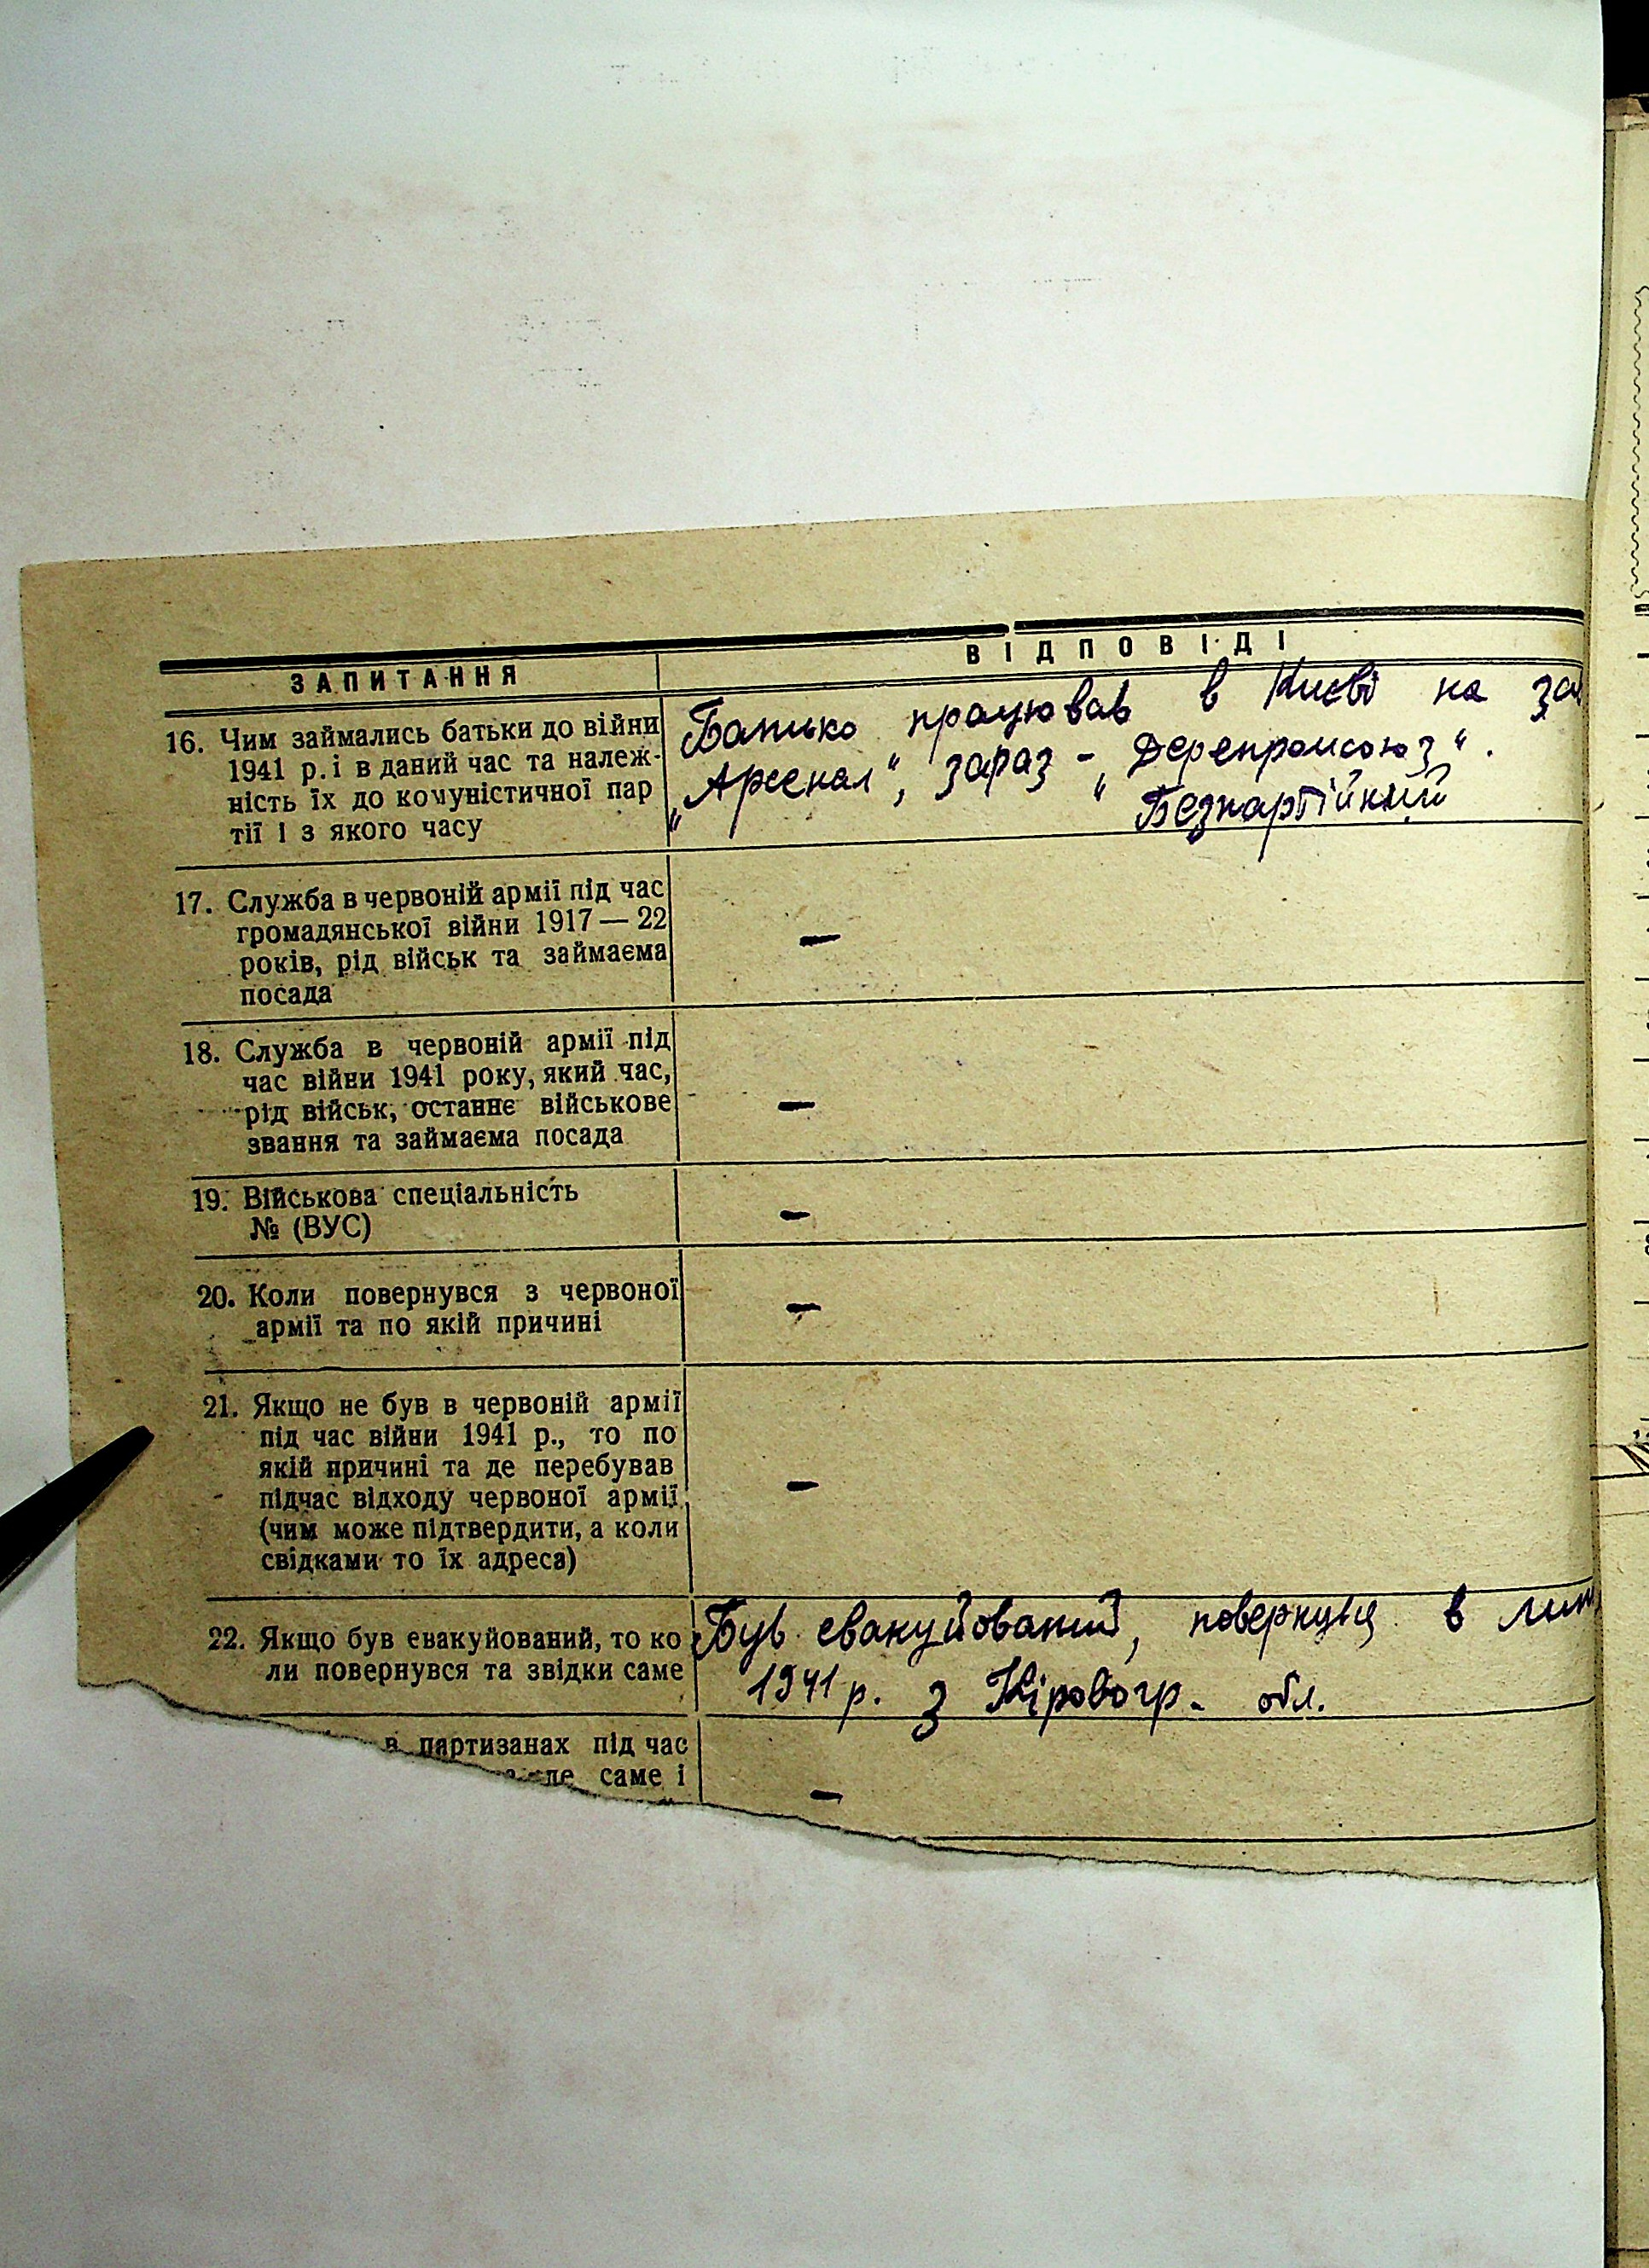 ЗАПИТАННЯ
ВІДПОВІДІ
16. Чим займались батьки до війни
1941 р. і в даний час та належ-
ність їх до комуністичної пар
тії і з якого часу
Батько працював в Києві на за
„Арсенал“, зараз - „Деревпромсоюз“.
Безпартійний
17. Служба в червоній армії під час
громадянської війни 1917 — 22
років, рід військ та займаєма
посада
—
18. Служба в червоній армії під
час війни 1941 року, який час,
рід військ, останнє військове
звання та займаєма посада
—
19. Військова спеціальність
№ (ВУС)
—
20. Коли повернувся з червоної
армії та по якій причині
—
21. Якщо не був в червоній армії
під час війни 1941 р., то по
якій причині та де перебував
підчас відходу червоної армії
(чим може підтвердити, а коли
свідками то їх адреса)
—
22. Якщо був евакуйований, то ко
ли повернувся та звідки саме
Був евакуйований, повернувся в лип
1941 р. з Кіровогр. обл.
в партизанах під час
де саме і
—